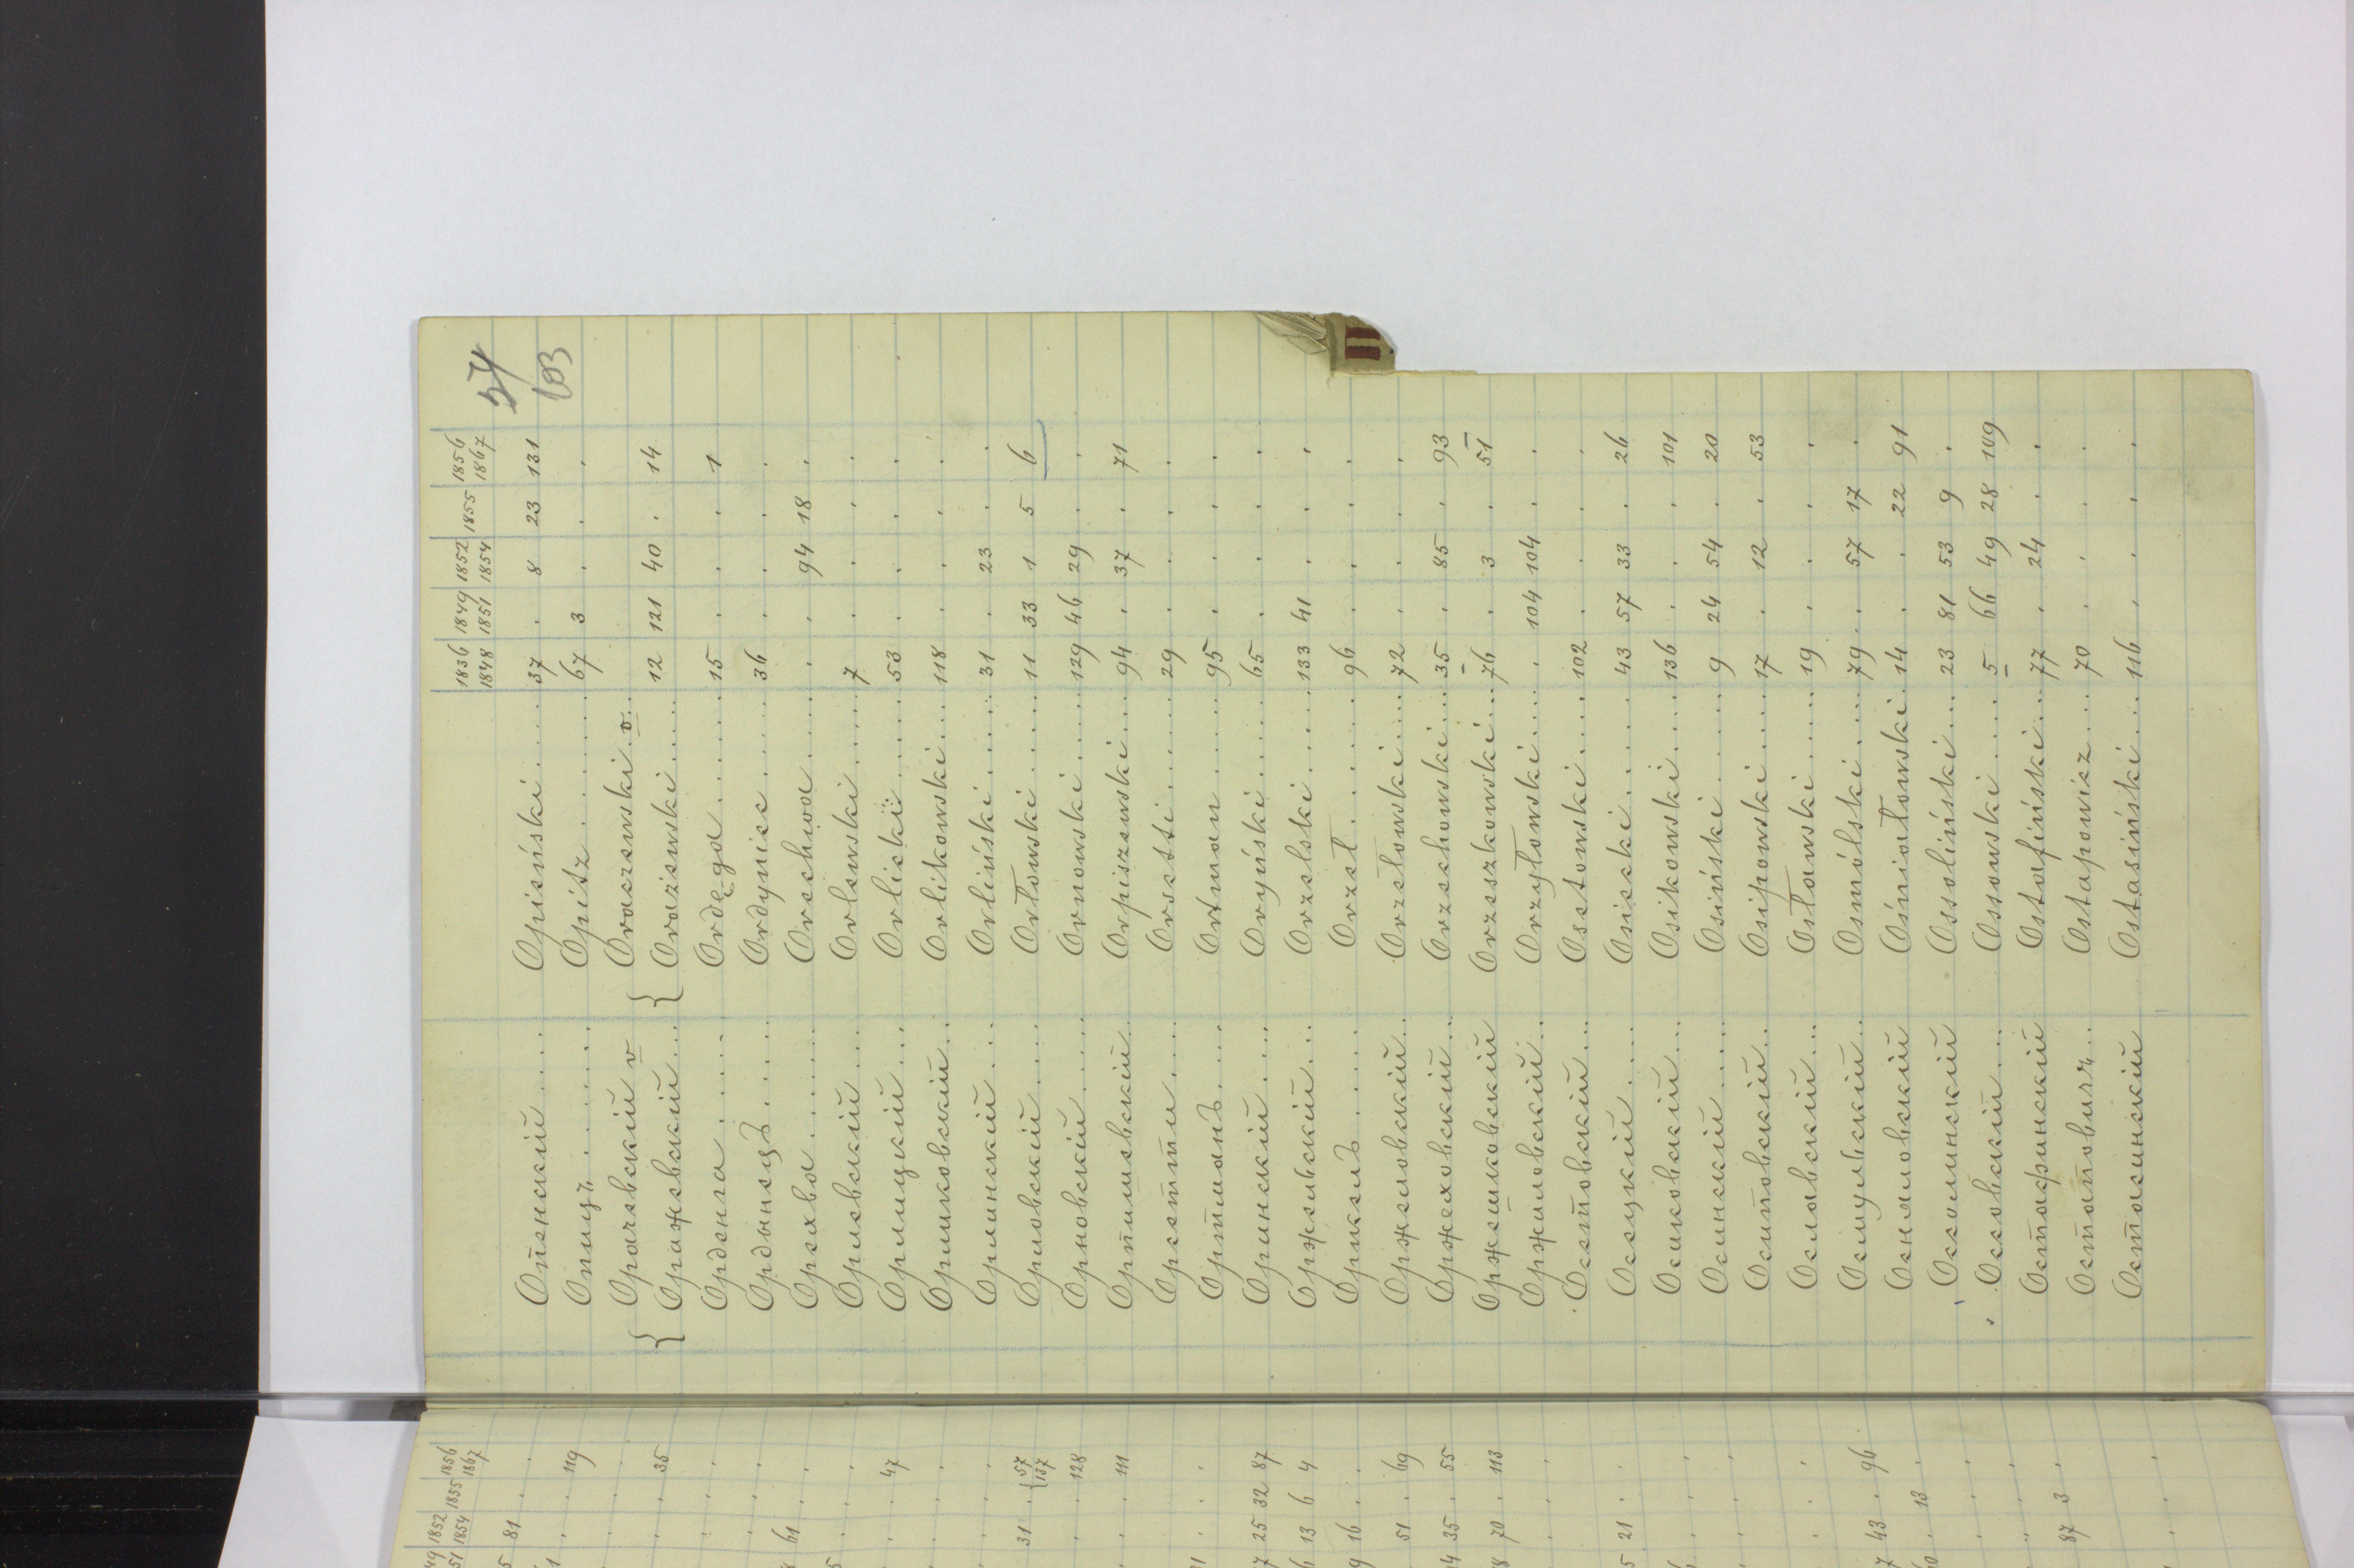 24
103
1836 1849 1852 1855 1856
1848 1851 1854 1867
Опенскій .... Opieński .... 37 . 8 23 131
Опицъ ...... Opitz ...... 67 3 . . .
{ Орачевскій v { Oraczewski v..
Оражевскій ... Oraziewski .... 12 121 40 . 14
Орденга ..... Ordęga ...... 15 . . . 1
Орданецъ .... Ordyniec ..... 36 . . . .
Орехва ...... Orechwa ..... . . 94 18 .
Орлевскій ... Orlewski ..... 7 . . . .
Орлицкій ... Orlicki ..... 53 . . . .
Орликовскій .. Orlikowski ... 118 . . . .
Орлинскій ... Orliński ..... 31 . 23 . .
Орловскій .... Orłowski ..... 11 33 1 5 6
Орновскій .... Ornowski ..... 129 46 29 . .
Орпишевскій .. Orpiszewski ... 94 . 37 . 71
Орсетти .... Orsetti ...... 29 . . . .
Ортманъ .... Ortman ...... 95 . . . .
Оринскій .... Oryński ...... 65 . . . .
Оржельскій ... Orzelski ..... 133 41 . . .
Оржелъ ..... Orzeł ...... 96 . . . .
Оржеловскій .. Orzełowski .... 72 . . . .
Оржеховскій .. Orzechowski ... 35 . 85 . 93
Оржешковскій Orzeszkowski ... 76 . 3 . 51
Оржиловскій .. Orzyłowski .... . 104 104 . .
Осетовскій ... Osetowski .... 102 . . . .
Осецкій .... Osiecki .... 43 57 33 . 26
Осиковскій ... Osikowski .... 136 . . . 101
Осинскій .... Osiński ..... 9 24 54 . 20
Осиповскій .. Osipowski .... 17 . 12 . 53
Ославскій ... Osławski ..... 19 . . . .
Осмульскій .. Osmólski ..... 79 . 57 17 .
Осняловскій Ośniałowski . 14 . . 22 91
Оссолинскій Ossoliński ... 23 81 53 9 .
Оссовскій ... Ossowski .... 5 66 49 28 109
Остафинскій Ostafiński ... 77 . 24 . .
Остаповичъ .. Ostapowicz ... 70 . . . .
Остасинскій Ostasiński ... 116 . . . .
1852 1855 1856
1854 1867
81 . .
. . 119
. . 35
61 . .
. . 47
31 . { 57
137
. . 128
. . 111
25 32 87
13 6 4
16 . .
51 . 69
35 . 55
70 . 113
21 . .
43 . 96
. 13 .
87 3 .